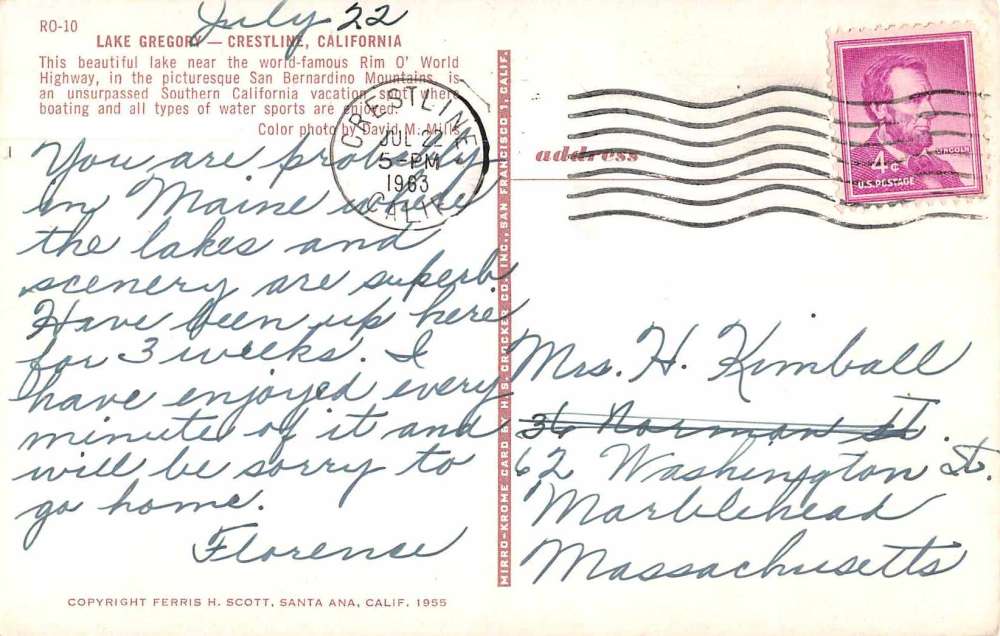 July 22
RO-10
LAKE GREGORY — CRESTLINE, CALIFORNIA
This beautiful lake near the world-famous Rim O' World
Highway, in the picturesque San Bernardino Mountains, is
an unsurpassed Southern California vacation spot where
boating and all types of water sports are enjoyed.
Color photo by David M. Mills
You are probably
in Maine where
the lakes and
scenery are superb.
Have been up here
for 3 weeks. I
have enjoyed every
minute of it and
will be sorry to
go home.
Florence
COPYRIGHT FERRIS H. SCOTT, SANTA ANA, CALIF. 1955
MIRRO-KROME CARD BY H.S. CROCKER CO. INC., SAN FRANCISCO 1, CALIF.
CRESTLINE
JUL 22
5-PM
1963
CALIF.
address
LINCOLN
4¢
U.S. POSTAGE
Mrs. H. Kimball
36 Norman St.
62 Washington St.
Marblehead
Massachusetts